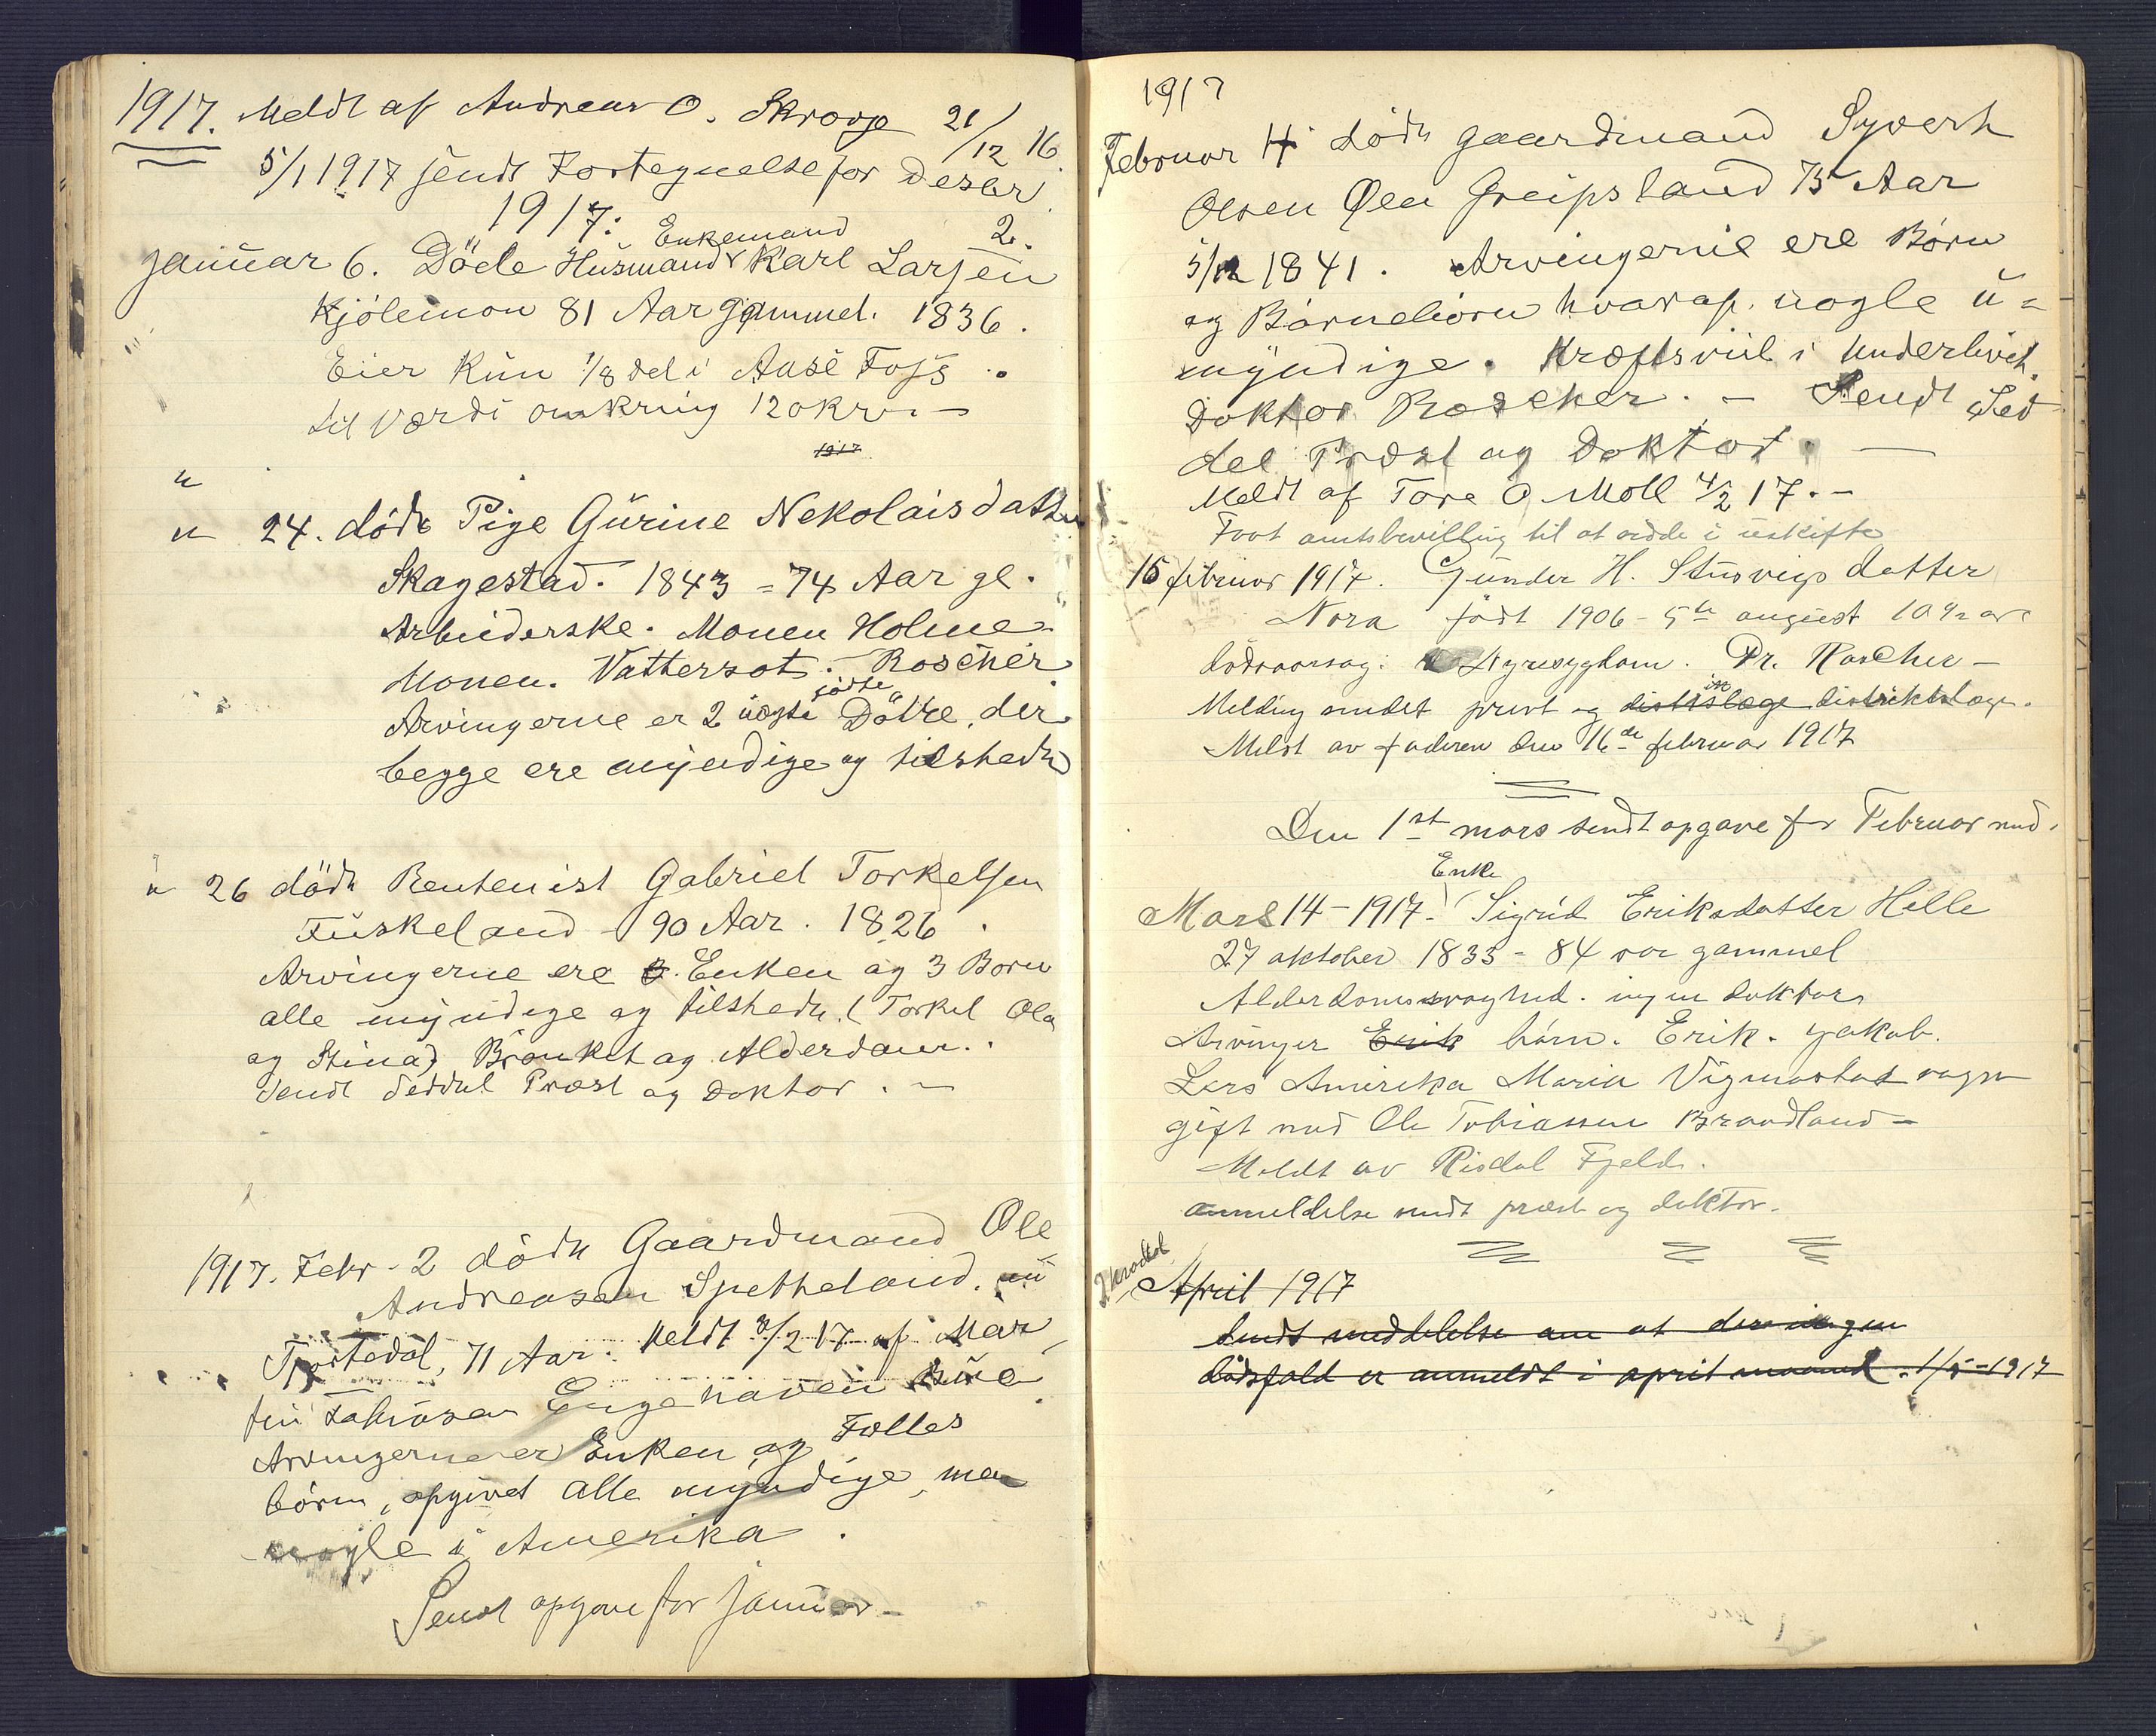 1917. Meldt af Andreas O. Skrovje 21/12 16.
5/1 1917 sendt Fortegnelse for Desbr.
1917. 2.
Enkemand
Januar 6. Döde Husmand Karl Larsen
Kjölemon 81 Aar gammel. 1836.
Eier kun 1/8 del i Aase Foss.
til værdi omkring 120 kr. -
1917
"
" 24. döde Pige Gurine Nekolaisdatter
Skagestad. 1843 = 74 Aar gl.
Arbeiderske. Monen Holme
Monen. Vattersot. Roscher.
södske
Arvingerne er 2 nogte Dötre, der
begge ere myndige og tilstede
" 26 döde Rentenist Gabriel Torkelsen
Fuskeland - 90 Aar. 1826.
Arvingerne ere 3. Enken og 3 Born
alle myndige og tilstede. (Torkel Ola
og Stina) Bronket og Alderdom.
Sendt Seddel Præst og Doktor. -
1917. Febr. 2 döde Gaardmand Ole
Andreasen Spetteland.
71 Aar. Meldt 3/2 17 af Mar
Arvingerne er Enken og Fælles
börn, opgivet alle myndige, men
nogle i Amerika.
Sendt opgave for Januar -
1917
Februar 4 döde gaardmand Syvert
Olsen Øen Greipsland 75 Aar
5/12 1841. Arvingerne ere Børn
og Børnebörn hvoraf nogle u=
myndige. Kræftsviil i Underlivet.
Doktor Roscher. - Sendt Sed
del Præst og Doktor. -
Meldt af Tore O. Moll 4/2 17. -
Faat amtsbevilling til at sidde i uskifte
15 februar 1917. Gunder H. Stusvigs datter
Nora født 1906 - 5te august 10 1/2 aar
dödsaarsag: Nyresygdom. Dr. Roscher -
Melding sendt prest og distrikslæge distriktslæge.
Meldt av faderen den 16de februar 1917
Den 1st mars sendt opgave for Februar md.
Enke
Mars 14 - 1917. Sigrid Eriksdatter Helle
27 oktober 1833 - 84 aar gammel
Alderdomssvaghed. ingen doktor
Arvinger Erik börn. Erik. Jakob.
Lars Amerika Maria Vigmostad
gift med Ole Tobiassen Brandland -
Meldt av Risdal Fjeld.
anmeldelse sendt præst og doktor.
April 1917
Sendt meddelelse om at der ingen
dödsfald er anmeldt i april maaned. 1/5 - 1917